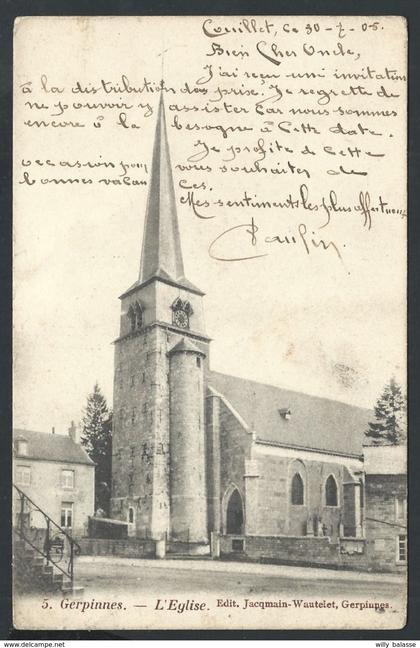 Couillet, ce 30-7-05
Bien Cher Oncle,
J'ai reçu une invitation
à la distribution des prix. Je regrette de
ne pouvoir y assister car nous sommes
encore à la besogne à cette date.
Je profite de cette
occasion pour vous souhaiter de
bonnes vacances.
Mes sentiments les plus affectueux
Paulin.
5. Gerpinnes. — L'Eglise. Edit. Jacqmain-Wautelet, Gerpinnes.
www.delcampe.net
willy balasse